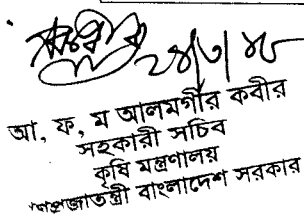 আ, ফ, ম আলমগীর কবীর
সহকারী সচিব
কৃষি মন্ত্রণালয়
গণপ্রজাতন্ত্রী বাংলাদেশ সরকার